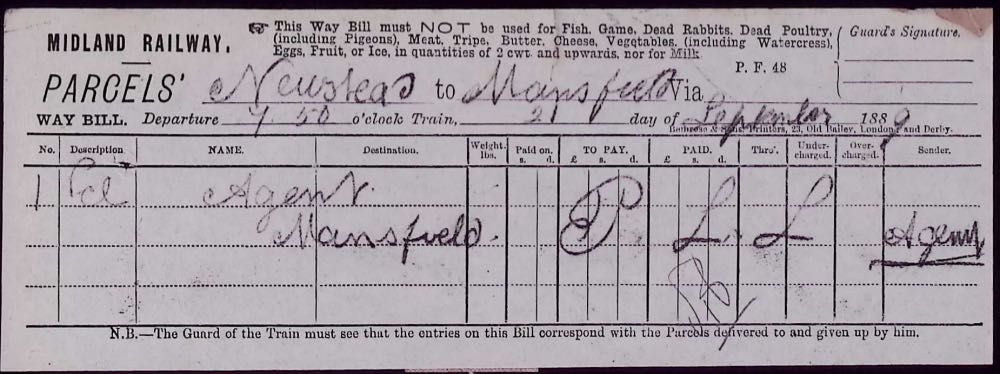 MIDLAND RAILWAY.
☞ This Way Bill must NOT be used for Fish, Game, Dead Rabbits, Dead Poultry,
(including Pigeons), Meat, Tripe, Butter, Cheese, Vegetables, (including Watercress),
Eggs, Fruit, or Ice, in quantities of 2 cwt. and upwards, nor for Milk
Guard's Signature.
P. F. 48
PARCELS' Newstead to Mansfield Via
WAY BILL. Departure 7 50 o'clock Train, 2 day of September 1889
Bemrose & Sons, Printers, 23, Old Bailey, London; and Derby.
No. Description NAME. Destination. Weight. lbs. Paid on. s. d. TO PAY. £ s. d. PAID. £ s. d. Thro'. Under-charged. Over-charged. Sender.
1 Pcl Agent
Mansfield. P L L Agent
N.B.—The Guard of the Train must see that the entries on this Bill correspond with the Parcels delivered to and given up by him.